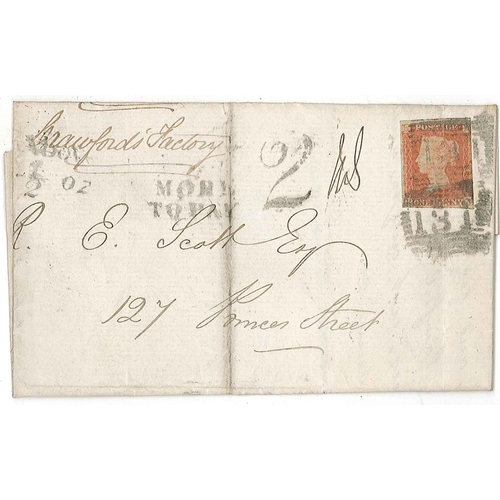 Crawford's Factory
MORE
TO PAY
2
POSTAGE
131
ONE PENNY
R. E. Scott Esq
127 Princes Street